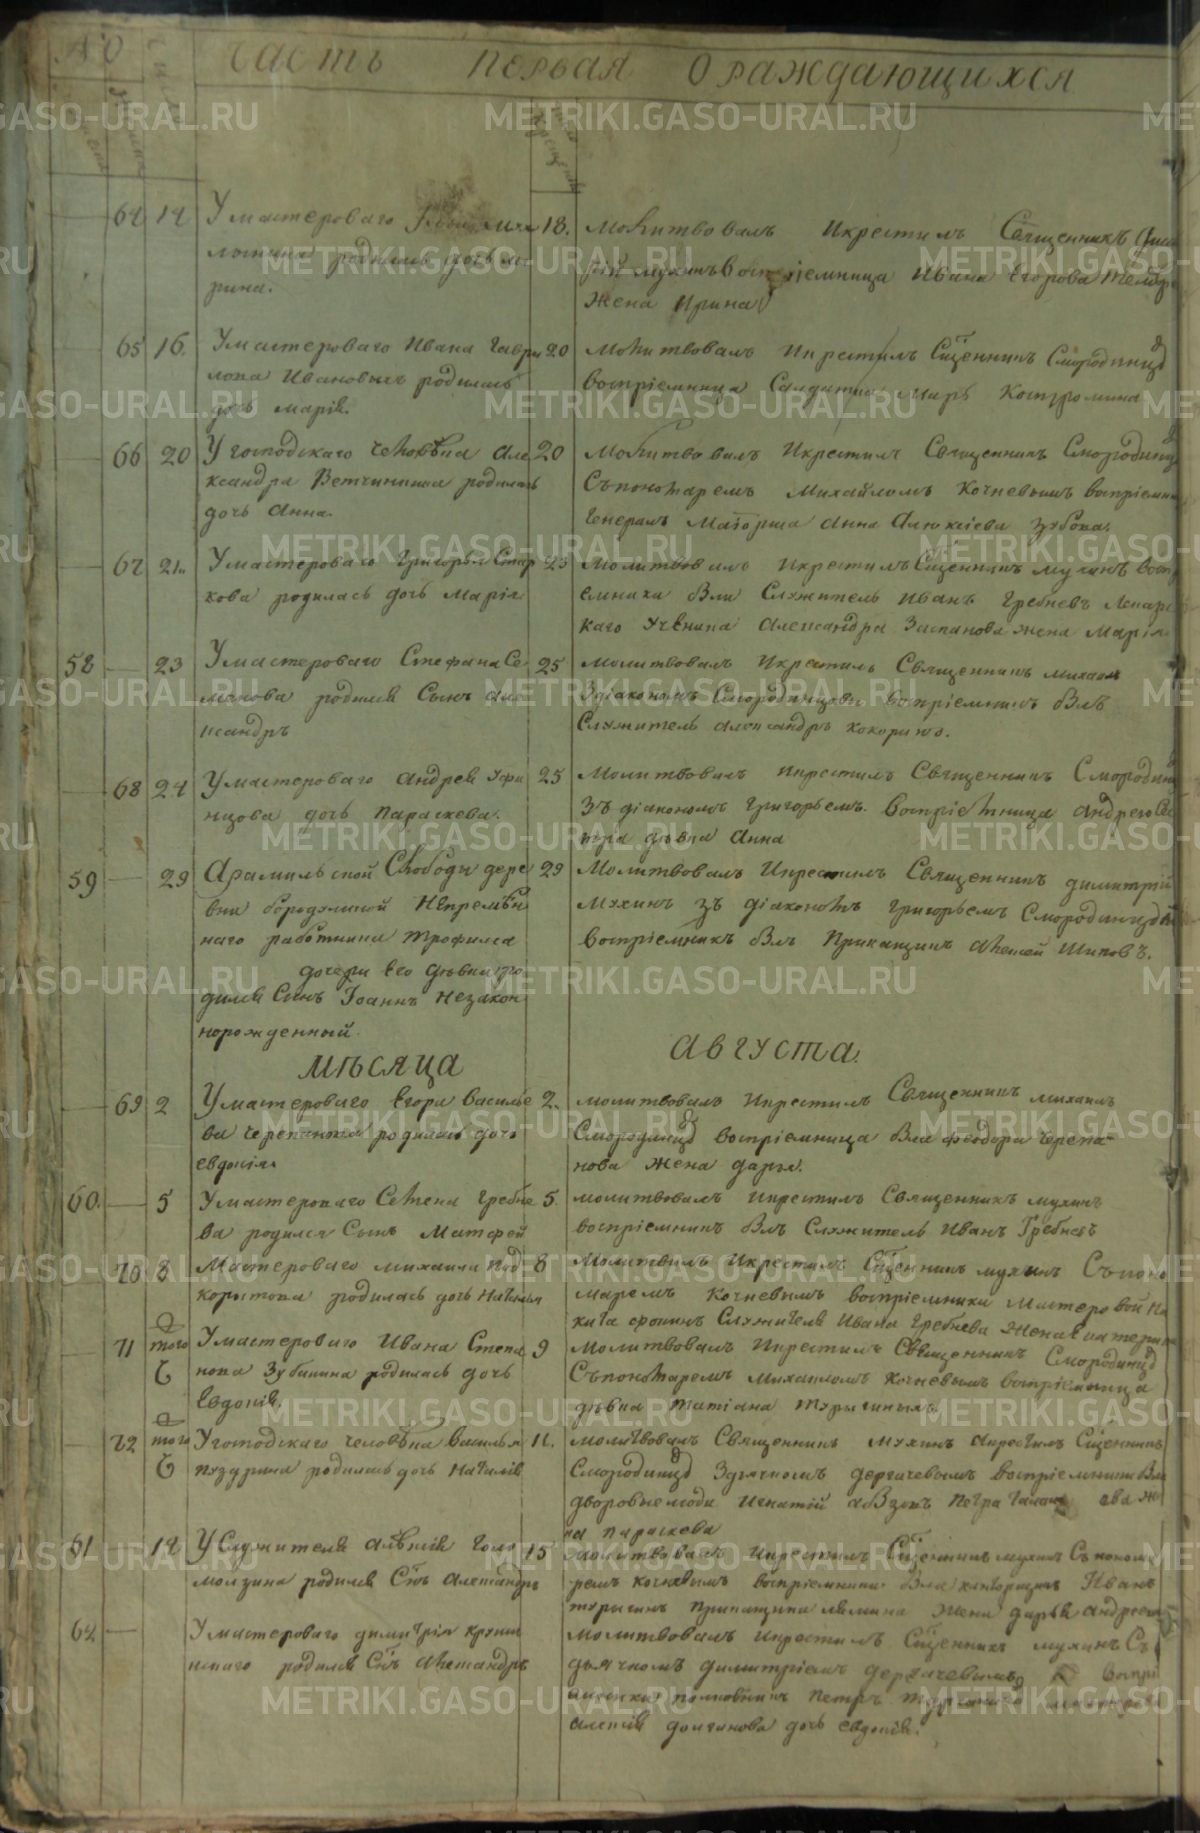 часть первая О раждающихся
64 14 У мастероваго родилась дочь
рина.
18. молитвовалъ Икрестилъ Священникъ
мухинъ воспріемница Ивана Егорова
Жена Ирина
65 16. У мастероваго Ивана Гаври
лова Ивановыхъ родилась
дочь марія.
20 молитвовалъ Икрестилъ Сщенникъ Смородинцо
воспріемница Салдатка Марья Костромина
66 20 У господскаго человѣка Але
ксандра Ветчинкина родилась
дочь Анна.
20 молитвовалъ Икрестилъ Священникъ Смородинц
Съпономаремъ Михайломъ Кочневымъ воспріемни
Генералъ Маіорша Анна Алексіева Зубова.
67 21. У мастероваго Григорья Стар
кова родилась дочь Марія
23 молитвовалъ Икрестилъ Сщенникъ мухинъ восп
емники были Служитель Иванъ Гребневъ Лекарс
каго Ученика Александра Заспанова жена Марія
58 23 У мастероваго Стефана Се
менова родился Сынъ Але
ксандръ
25 молитвовалъ Икрестилъ Священникъ михаилъ
Здіакономъ Смородинцовы воспріемникъ былъ
Служитель александръ кокорино.
68 24 У мастероваго Андрея Уфи
нцова дочь Параскева.
25 Молитвовалъ Икрестилъ Священникъ Смородинц
Зъ діакономъ Григорьемъ. Воспріемница Андрея Се
тра дѣвка Анна
59 29 Арамильской Слободы дере
вни бородулиной Непремѣн
наго работника Трофима
дочери Его дѣвки ро
дился Сынъ Іоаннъ Незакон
норожденный.
29 Молитвовалъ Икрестилъ Священникъ димитрій
Мухинъ зъ діакономъ Григорьемъ Смородинцо
воспріемникъ былъ Прикащикъ Алексей Шиповъ.
мѣсяца Августа.
69 2 У мастероваго Егора Василье
ва черепанова родилась дочь
евдокія
2. молитвовалъ Икрестилъ Священникъ михаилъ
Смородинцо воспріемница была Феодора Черепа-
нова Жена дарья.
60. 5 У мастероваго Семена Гребне
ва родился Сынъ Матфей
5. молитвовалъ Икрестилъ Священникъ мухинъ
воспріемникъ былъ Служитель Иванъ Гребневъ
70 8 Мастероваго михаила Под
корытова родилась дочь Наталья
8 Молитвилъ Икрестилъ Сщенникъ мухинъ Съпоно
маремъ Кочневымъ воспріемники Мастеровой Ни
кита Служителя Ивана Гребнева Жена Катерина
71 того У мастероваго Ивана Степа
нова Зубинина родилась дочь
Евдокія.
9 молитвовалъ Икрестилъ Священникъ Смородинцо
Съпономаремъ Михаиломъ Кочневымъ воспріемница
дѣвка татіана турыгиныхъ.
72 того У господскаго человѣка Василья
пуздрина родилась дочь Наталія
11. молитвовалъ Священникъ мухинъ Икрестилъ Сщенникъ
Смородинцо Здьячкомъ дергачевымъ воспріемники были
дворовые люди Игнатій Петра
на параскева
61 12 У Служителя Алексія Голо
молзина родился Снъ Александръ
15 молитвовалъ Икрестилъ Сщенникъ мухинъ Съ поном
ремъ кочневымъ воспріемники была Иванъ
турыгинъ прикащика лямина Жена дарья андреев
62 У мастероваго димитрія круши
нскаго родился Снъ Александръ
молитвовалъ Икрестилъ Сщенникъ мухинъ Съ
дьячкомъ димитріемъ дергачевымъ воспрі
емники полковникъ Петръ
алексія долганова дочь евдокія.
METRIKI.GASO-URAL.RU